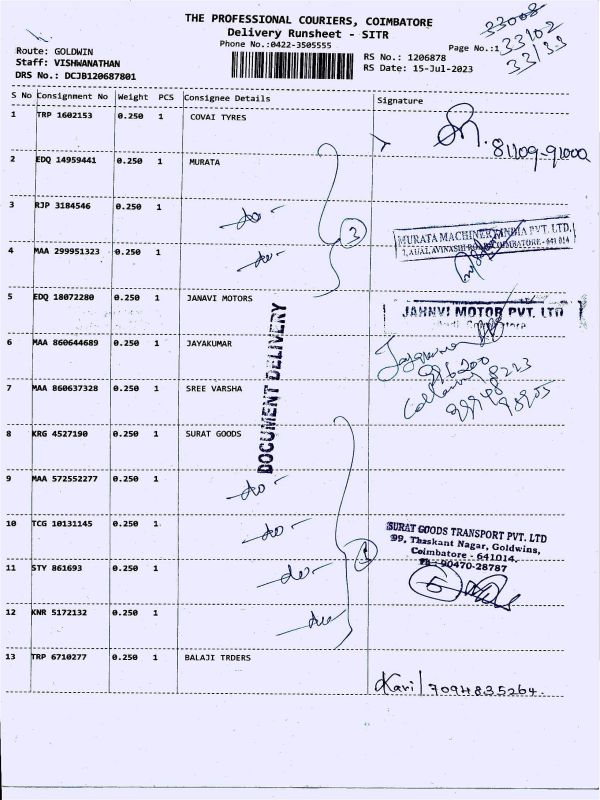 THE PROFESSIONAL COURIERS, COIMBATORE
Delivery Runsheet - SITR
Phone No.:0422-3505555
Page No.:1
33008
33102
33133
Route: GOLDWIN
Staff: VISHWANATHAN
DRS No.: DCJB120687801
RS No.: 1206878
RS Date: 15-Jul-2023
S No Consignment No Weight PCS Consignee Details Signature
1 TRP 1602153 0.250 1 COVAI TYRES
81109-91000
2 EDQ 14959441 0.250 1 MURATA
3 RJP 3184546 0.250 1 -do-
3
MURATA MACHINERY INDIA PVT. LTD.
AVINASHI ROAD, COIMBATORE - 641 014
4 MAA 299951323 0.250 1 -do-
5 EDQ 18072280 0.250 1 JANAVI MOTORS
JAHNVI MOTOR PVT. LTD
DOCUMENT DELIVERY
6 MAA 860644689 0.250 1 JAYAKUMAR
7 MAA 860637328 0.250 1 SREE VARSHA
8 KRG 4527190 0.250 1 SURAT GOODS
9 MAA 572552277 0.250 1 -do-
10 TCG 10131145 0.250 1 -do-
SURAT GOODS TRANSPORT PVT. LTD
99, Thaskant Nagar, Goldwins,
Coimbatore - 641014.
Ph : 90470-28787
11 STY 861693 0.250 1 -do-
5
12 KNR 5172132 0.250 1 -do-
13 TRP 6710277 0.250 1 BALAJI TRDERS
Kavi / 7094835264.